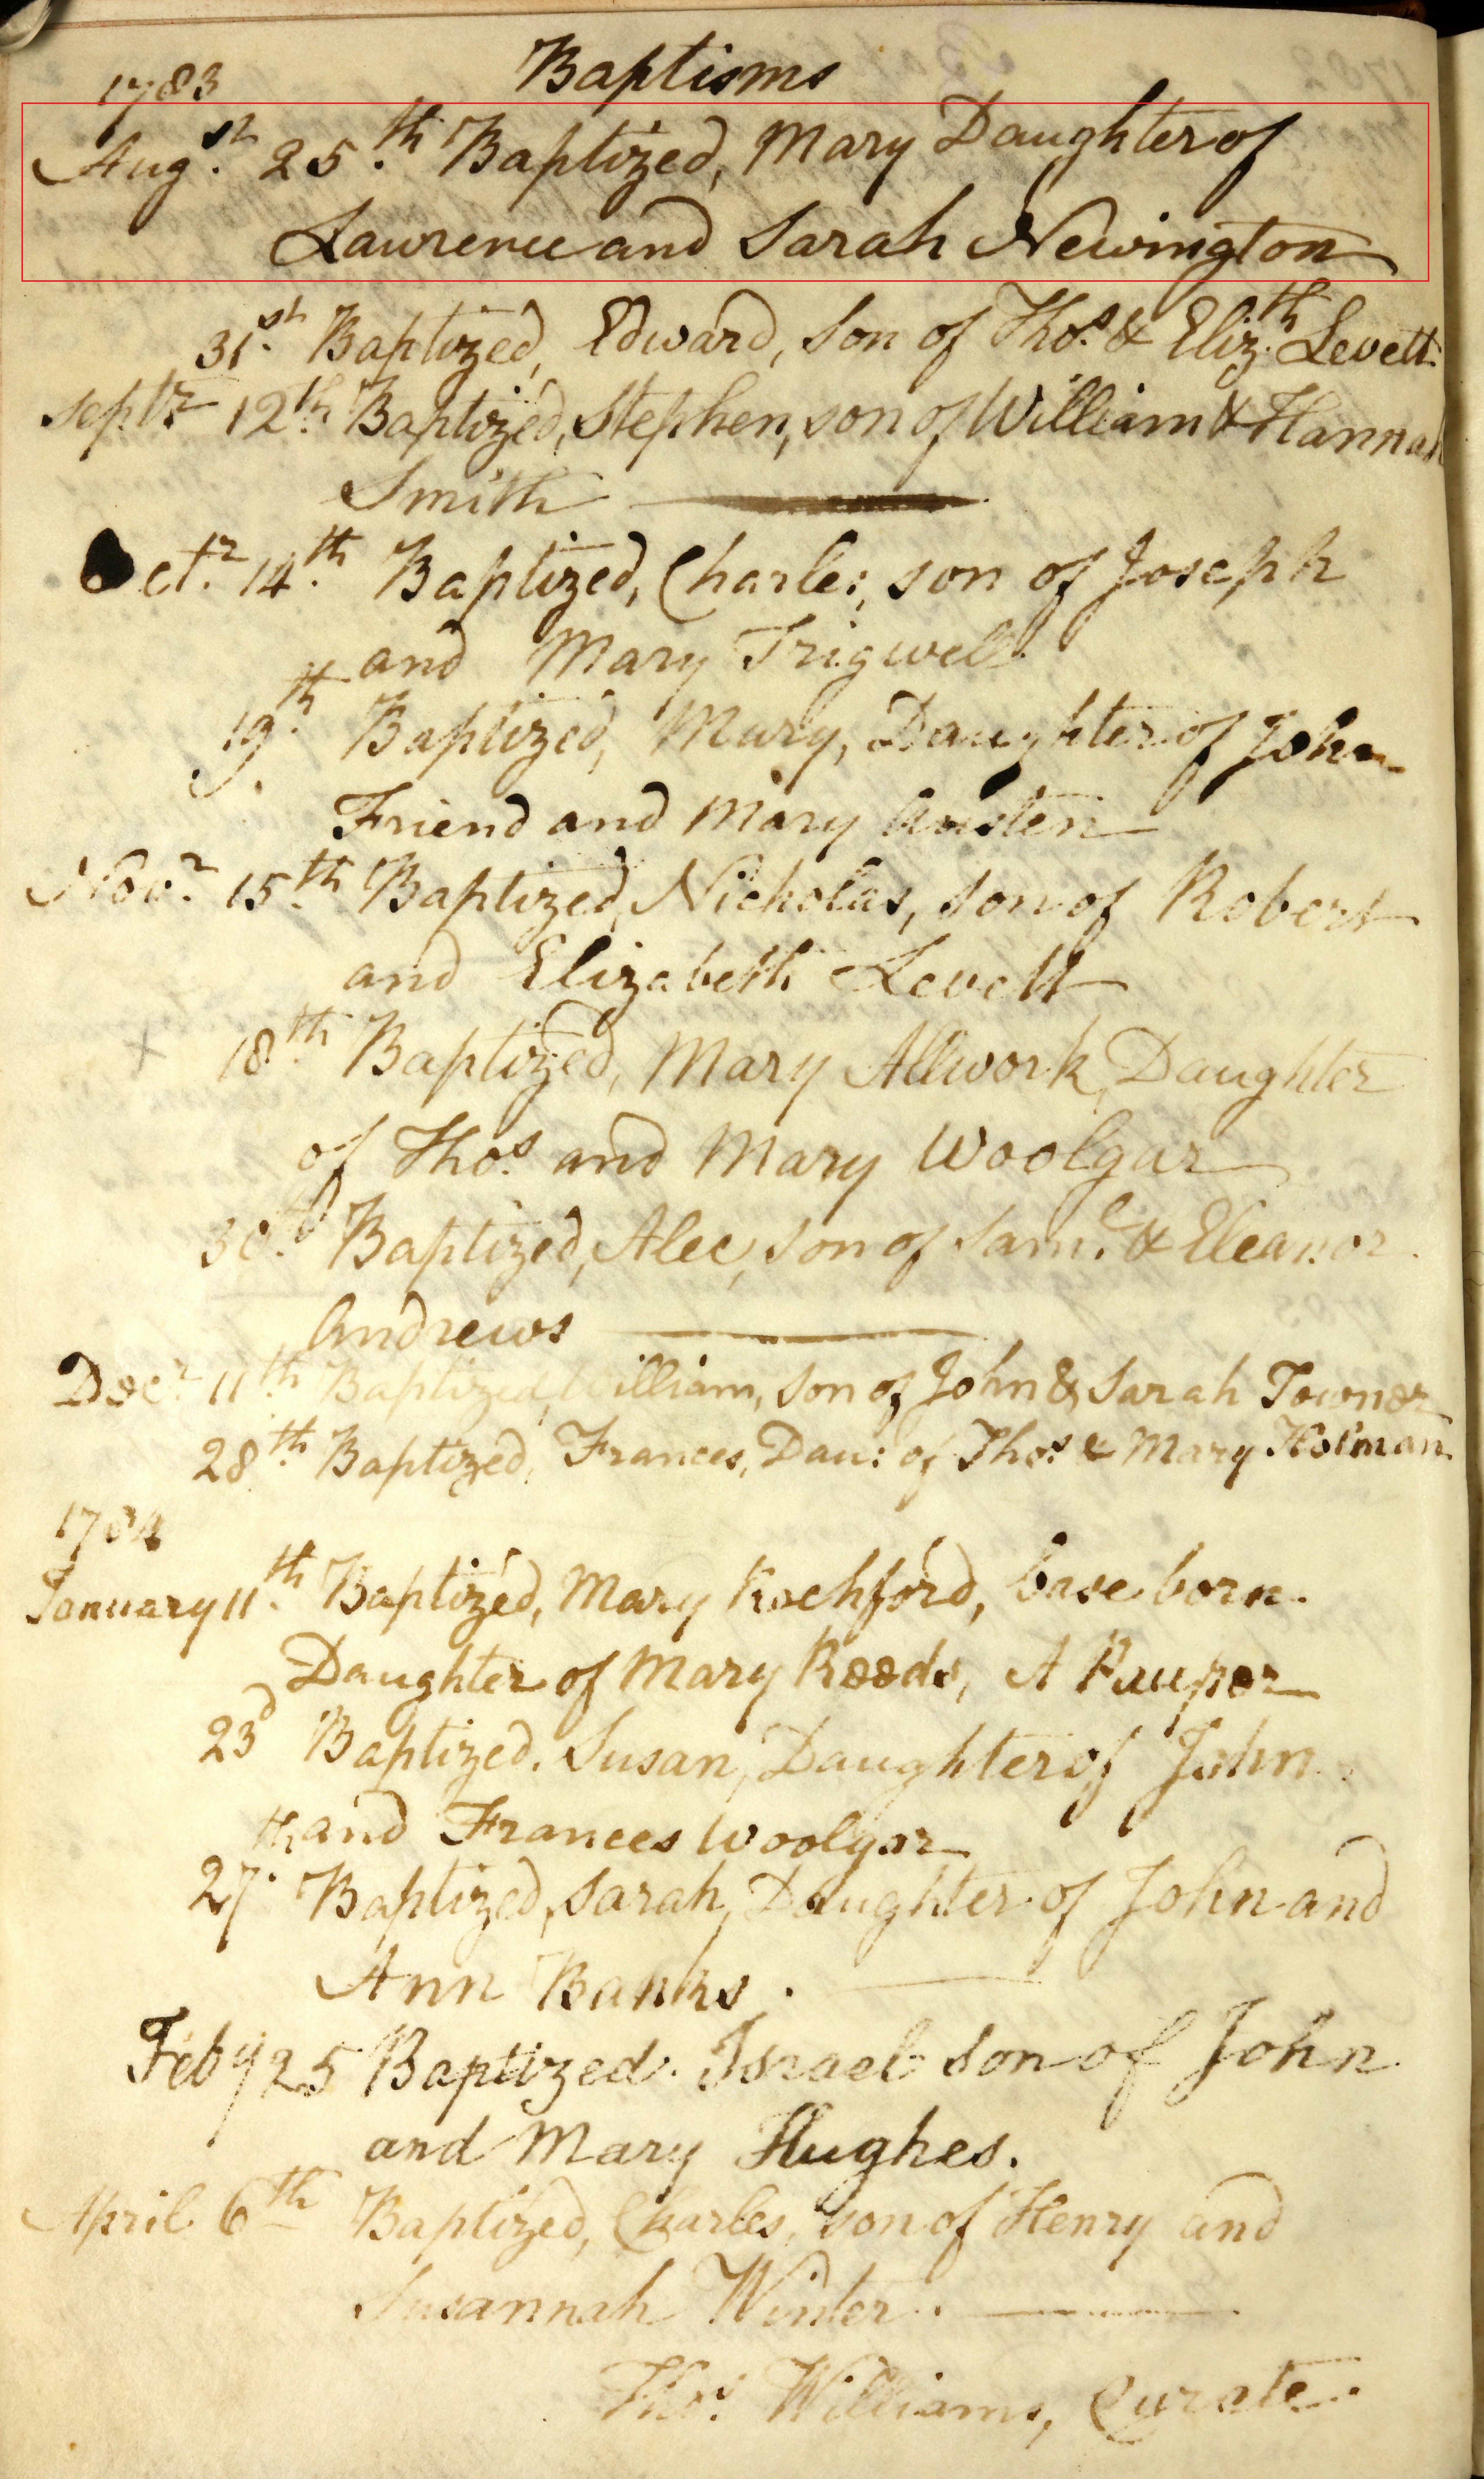 Baptisms
1783
Augst. 25th. Baptized, Mary Daughter of
Lawrence and Sarah Newington
31st. Baptized, Edward, Son of Thos. & Eliz.th Levett
Septr 12th. Baptized, Stephen, son of William & Hannah
Smith
Octr. 14th. Baptized, Charles, son of Joseph
and Mary Trigwell
19th. Baptized, Mary, Daughter of John
Friend and Mary Austen
Novr. 15th. Baptized, Nicholas, son of Robert
and Elizabeth Levett
x 18th. Baptized, Mary Allwork, Daughter
of Thos. and Mary Woolgar
30th. Baptized, Alec, son of Saml. & Eleanor
Andrews
Decr 11th Baptized, William, son of John & Sarah Towner
28th. Baptized, Frances, Dau: of Thos. & Mary Holman
1784
January 11th. Baptized, Mary Rochford, base born
Daughter of Mary Reeds, A Pauper
23d Baptized. Susan, Daughter of John
and Frances Woolgar
27th. Baptized, Sarah, Daughter of John and
Ann Banks.
Feby 25 Baptized. Israel son of John
and Mary Hughes.
April 6th Baptized, Charles, son of Henry and
Susannah Winter.
Thos. Williams, Curate.